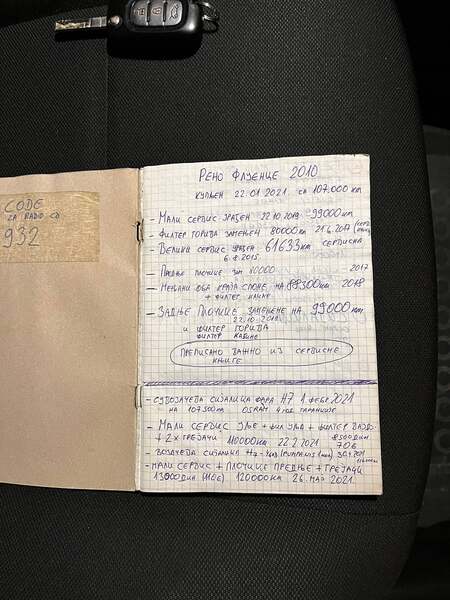 CODE
ZA RADIO CD
932
РЕНО ФЛУЕНЦЕ 2010
КУПЉЕН 22.01 2021 СА 107.000 КМ
- МАЛИ СЕРВИС УРАЂЕН 22.10.2019 - 99000 КМ
- ФИЛТЕР ГОРИВА ЗАМЕЊЕН 80000 КМ 21.6.2017
- ВЕЛИКИ СЕРВИС УРАЂЕН 61633 КМ СЕРВИСНА
6.8.2015
- ПРЕДЊЕ ПЛОЧИЦЕ НА 80000 - 2017
- МЕЊАНИ ОБА КРАЈА СПОНЕ НА 88300 КМ 2018
+ ФИЛТЕР КАБИНЕ
- ЗАДЊЕ ПЛОЧИЦЕ ЗАМЕЊЕНЕ НА 99000 КМ
22.10.2019
И ФИЛТЕР ГОРИВА
ФИЛТЕР КАБИНЕ
ПРЕПИСАНО ВАЖНО ИЗ СЕРВИСНЕ
КЊИГЕ
- СУВОЗАЧЕВА СИЈАЛИЦА ФАРА H7 1. ФЕБ 2021
НА 107500 КМ OSRAM 4 ГОД ГАРАНЦИЈЕ
- МАЛИ СЕРВИС УЉЕ + ФИЛ УЉА + ФИЛТЕР ВАЗД.
+ 2 X ГРЕЈАЧИ 110000 КМ 22.2.2021 8500 ДИН
70 Е
- ВОЗАЧЕВА СИЈАЛИЦА H7
- МАЛИ СЕРВИС + ПЛОЧИЦЕ ПРЕДЊЕ + ГРЕЈАЧИ
13000 ДИН (110 Е) 120000 КМ 26. МАЈ 2021.